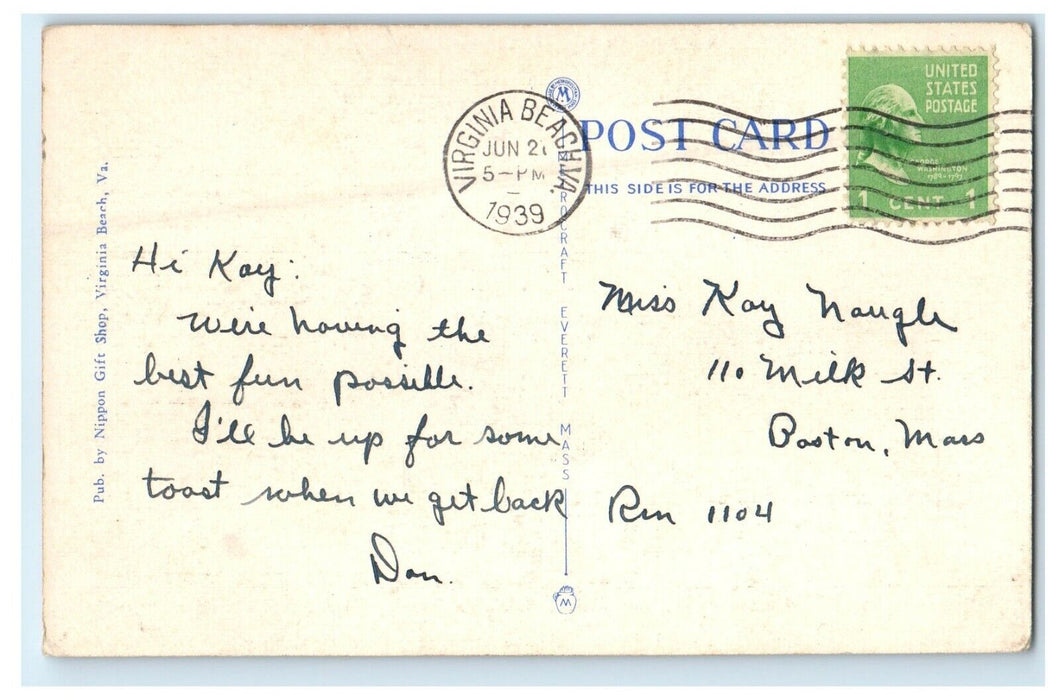 Pub. by Nippon Gift Shop, Virginia Beach, Va.
VIRGINIA BEACH, VA.
JUN 2
5-PM
1939
W
POST CARD
THIS SIDE IS FOR THE ADDRESS
METROCRAFT EVERETT MASS
W
UNITED
STATES
POSTAGE
GEORGE
WASHINGTON
1789-1797
1 CENT 1
Hi Kay:
We're having the
best fun possible.
I'll be up for some
toast when we get back
Don.
Miss Kay Naugle
110 Milk St.
Boston, Mass
Rm 1104